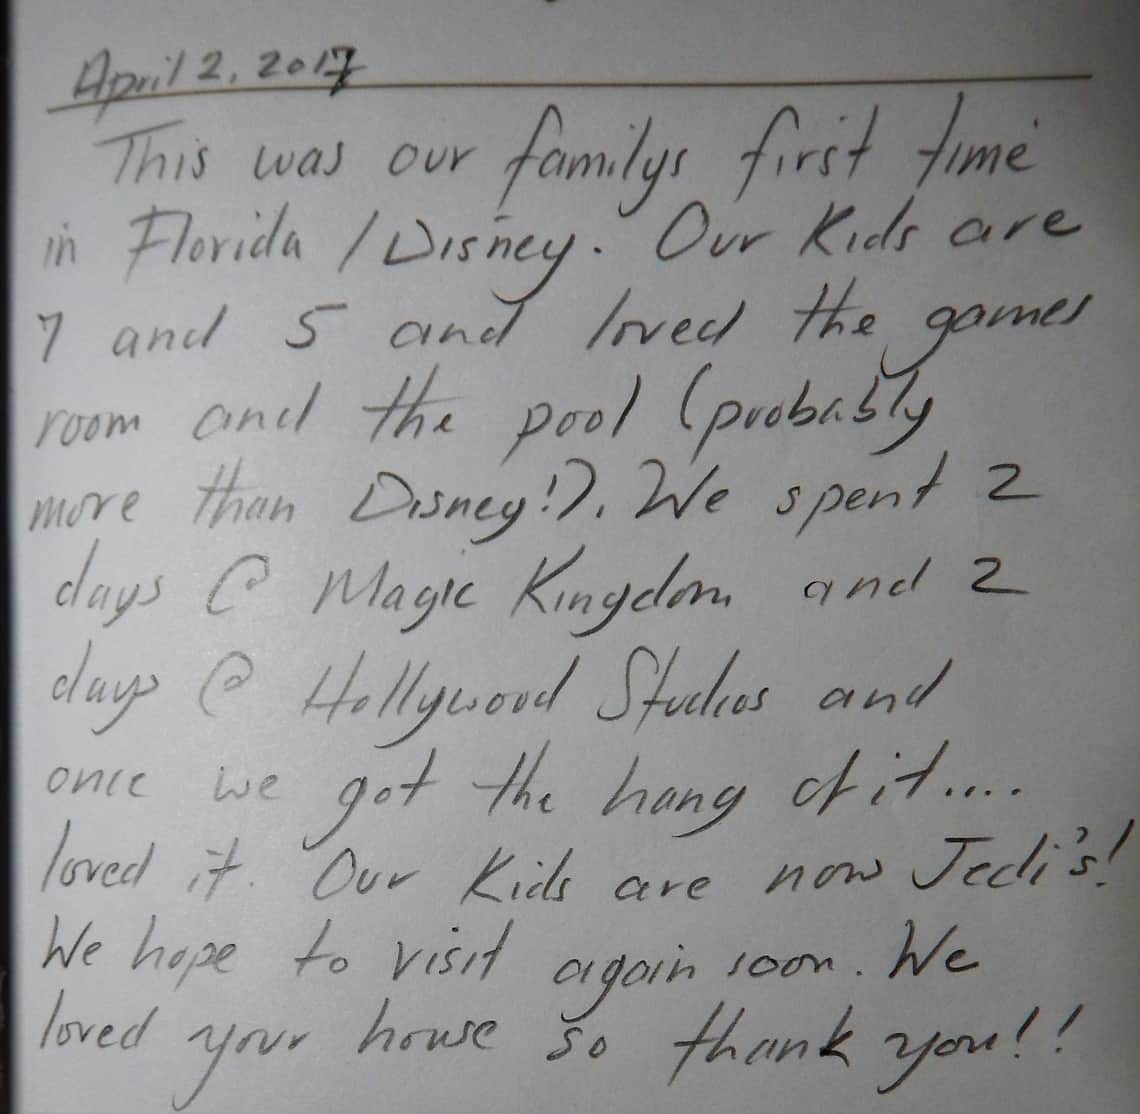 April 2, 2017
This was our familys first time
in Florida / Disney. Our Kids are
7 and 5 and loved the games
room and the pool (probably
more than Disney!). We spent 2
days @ Magic Kingdom and 2
days @ Hollywood Studios and
once we got the hang of it....
loved it. Our Kids are now Jedi's!
We hope to visit again soon. We
loved your house so thank you!!